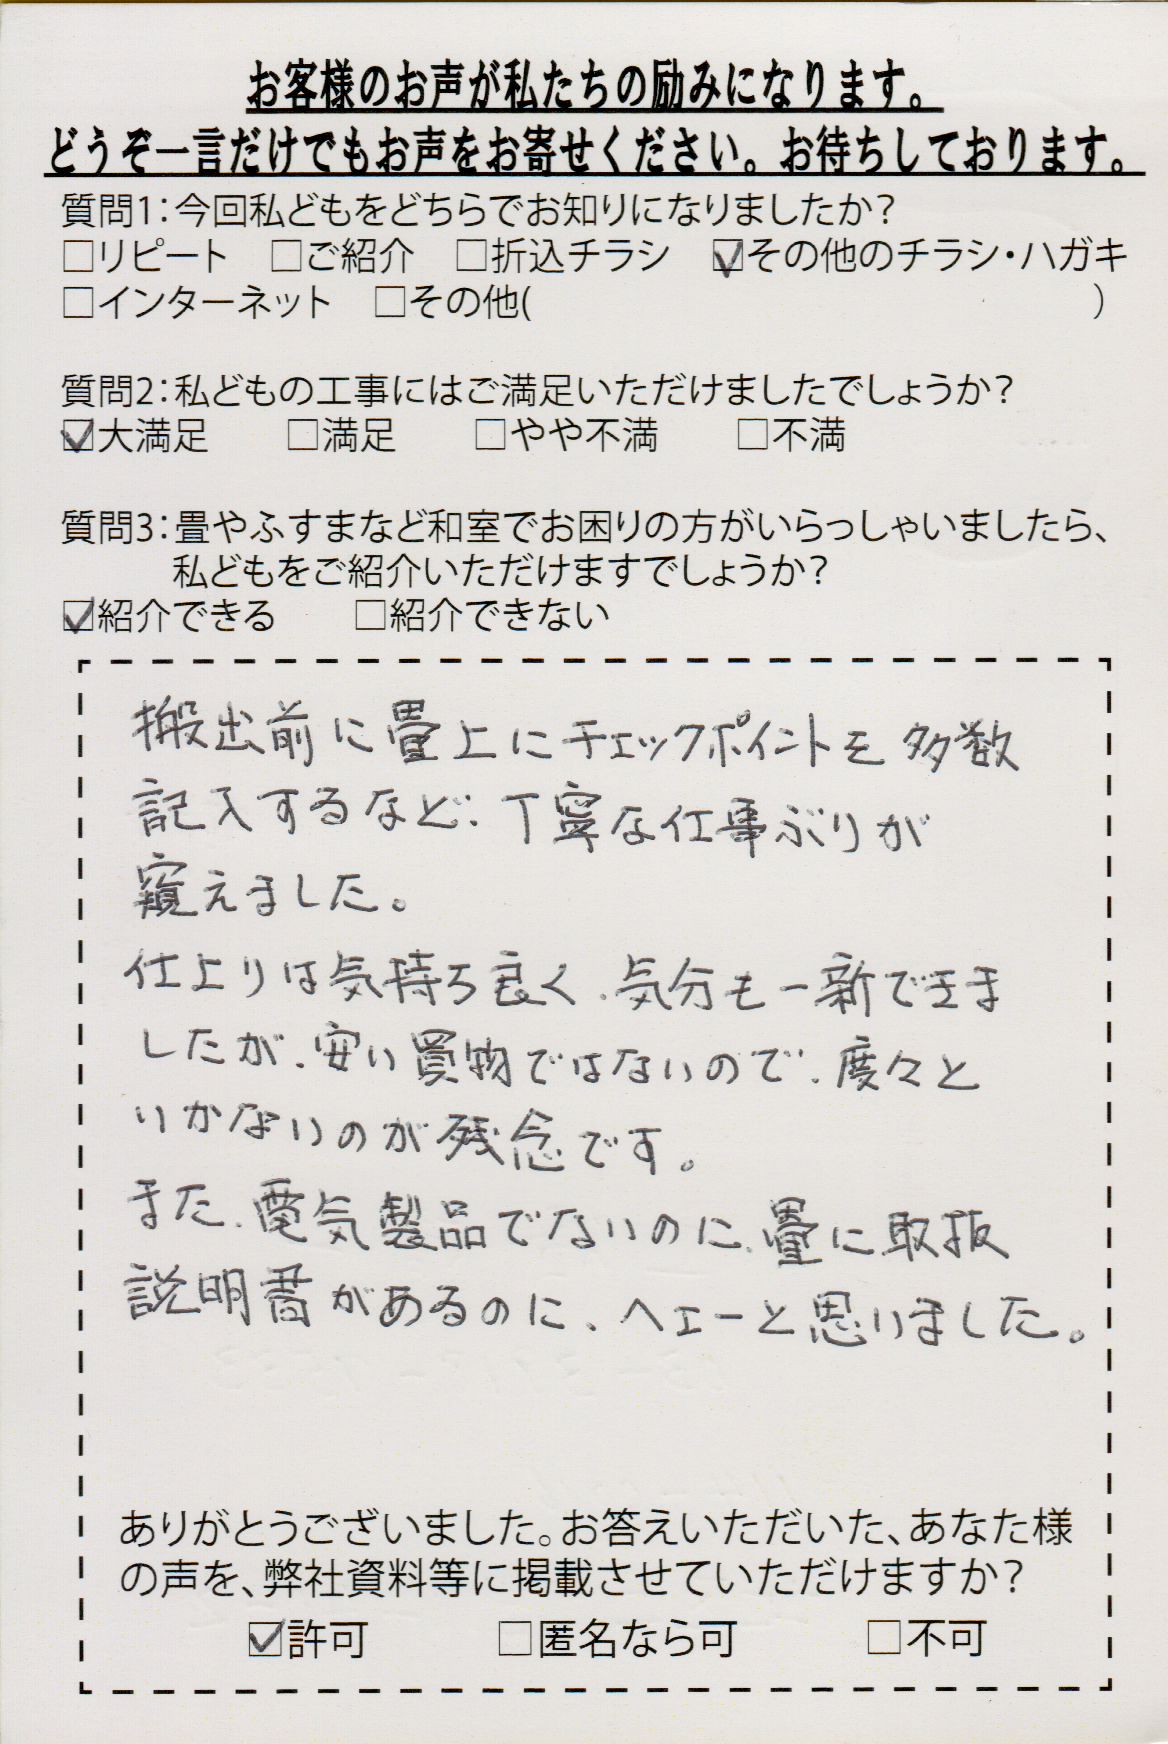 お客様のお声が私たちの励みになります。
どうぞ一言だけでもお声をお寄せください。お待ちしております。
質問1：今回私どもをどちらでお知りになりましたか？
□リピート　□ご紹介　□折込チラシ　☑その他のチラシ・ハガキ
□インターネット　□その他(　　　　　　　　　　　　　　　)
質問2：私どもの工事にはご満足いただけましたでしょうか？
☑大満足　□満足　□やや不満　□不満
質問3：畳やふすまなど和室でお困りの方がいらっしゃいましたら、
私どもをご紹介いただけますでしょうか？
☑紹介できる　□紹介できない
搬出前に畳上にチェックポイントを多数
記入するなど、丁寧な仕事ぶりが
窺えました。
仕上りは気持ち良く、気分も一新できま
したが、安い買物ではないので、度々と
いかないのが残念です。
また、電気製品でないのに、畳に取扱
説明書があるのに、ヘェーと思いました。
ありがとうございました。お答えいただいた、あなた様
の声を、弊社資料等に掲載させていただけますか？
☑許可　□匿名なら可　□不可